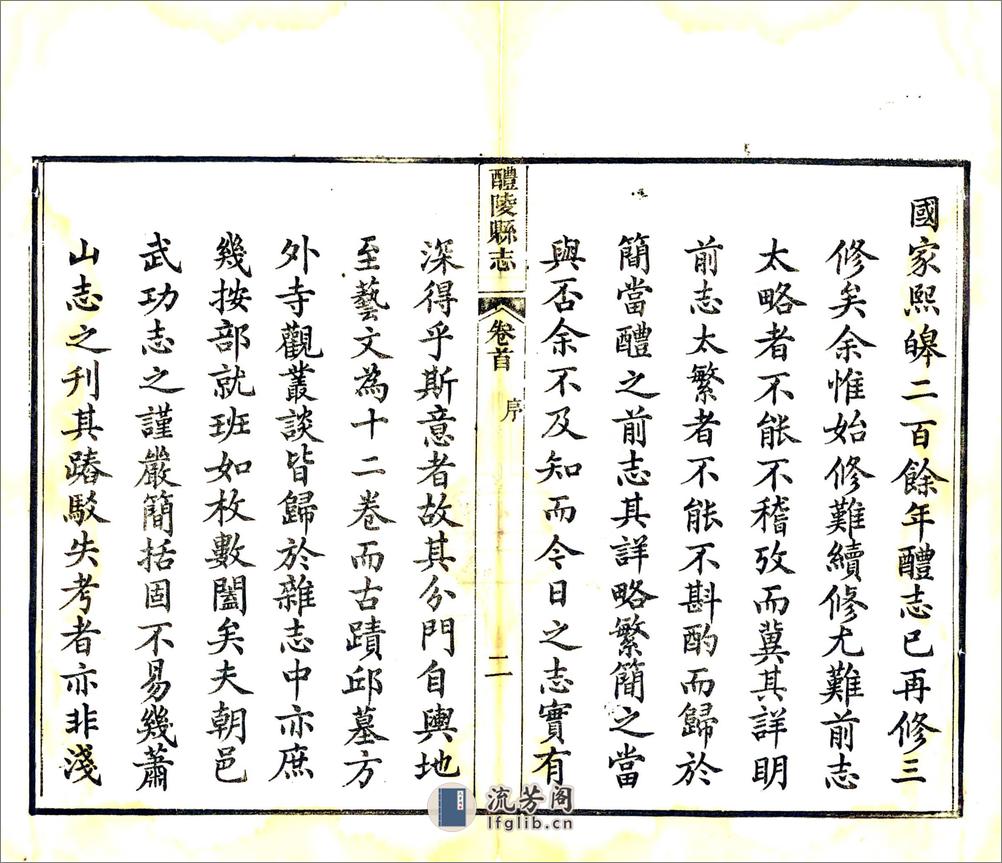 國家熙皥二百餘年醴志已再修三
修矣余惟始修難續修尤難前志
太略者不能不稽攷而冀其詳明
前志太繁者不能不斟酌而歸於
簡當醴之前志其詳略繁簡之當
與否余不及知而今日之志實有
醴陵縣志
卷首
序
二
深得乎斯意者故其分門自輿地
至藝文為十二卷而古蹟邱墓方
外寺觀叢談皆歸於雜志中亦庶
幾按部就班如枚數闔矣夫朝邑
武功志之謹嚴簡括固不易幾蕭
山志之刋其踳駁失考者亦非淺
流芳阁
lfglib.cn